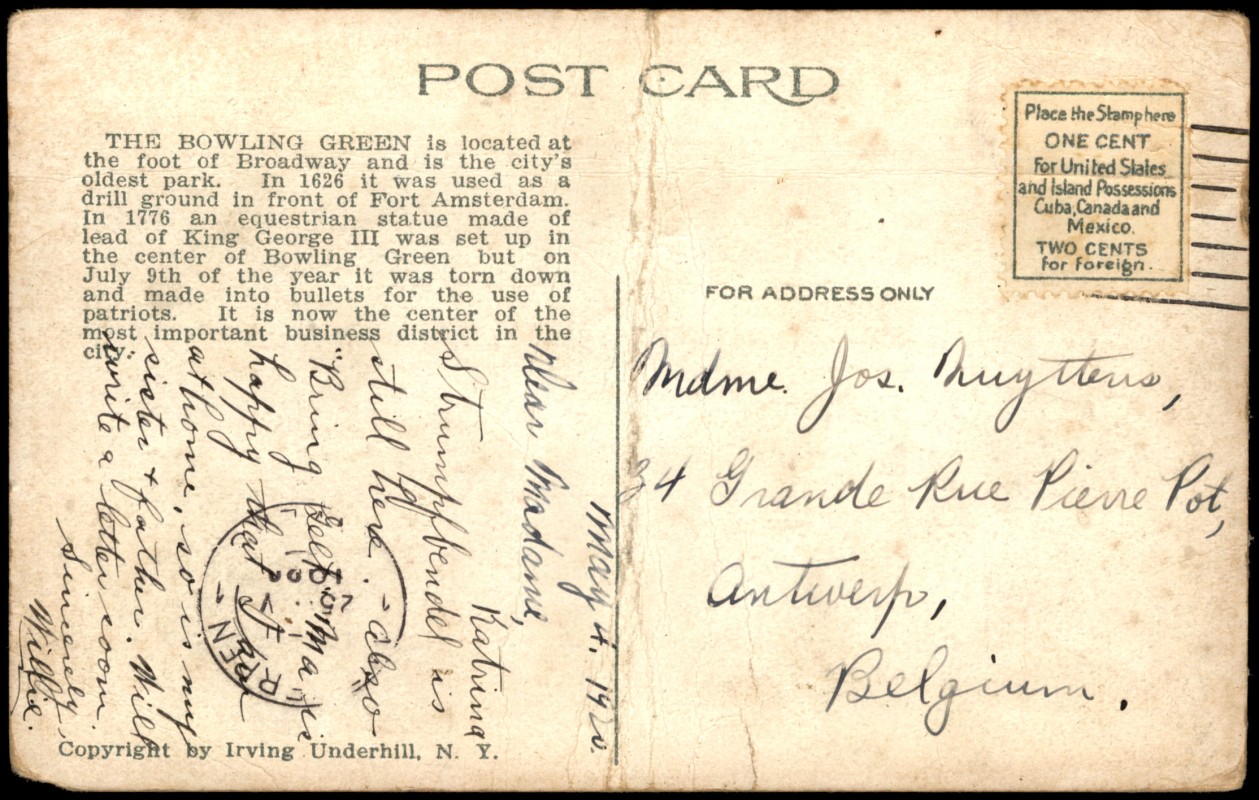 POST CARD
THE BOWLING GREEN is located at
the foot of Broadway and is the city's
oldest park. In 1626 it was used as a
drill ground in front of Fort Amsterdam.
In 1776 an equestrian statue made of
lead of King George III was set up in
the center of Bowling Green but on
July 9th of the year it was torn down
and made into bullets for the use of
patriots. It is now the center of the
most important business district in the
city.
Place the Stamp here
ONE CENT
For United States
and Island Possessions
Cuba, Canada and
Mexico.
TWO CENTS
for Foreign.
FOR ADDRESS ONLY
Mdme. Jos. Nuyttens,
34 Grande Rue Pierre Pot,
Antwerp,
Belgium.
May 4. 1920
Dear Madame,
Katrina
Strumpfbendel is
still here. - also
"Bring Gelt." Ma is
happy that I am
at home, so is my
sister & father. Will
write a letter soon.
Sincerely
Willie.
Copyright by Irving Underhill, N. Y.